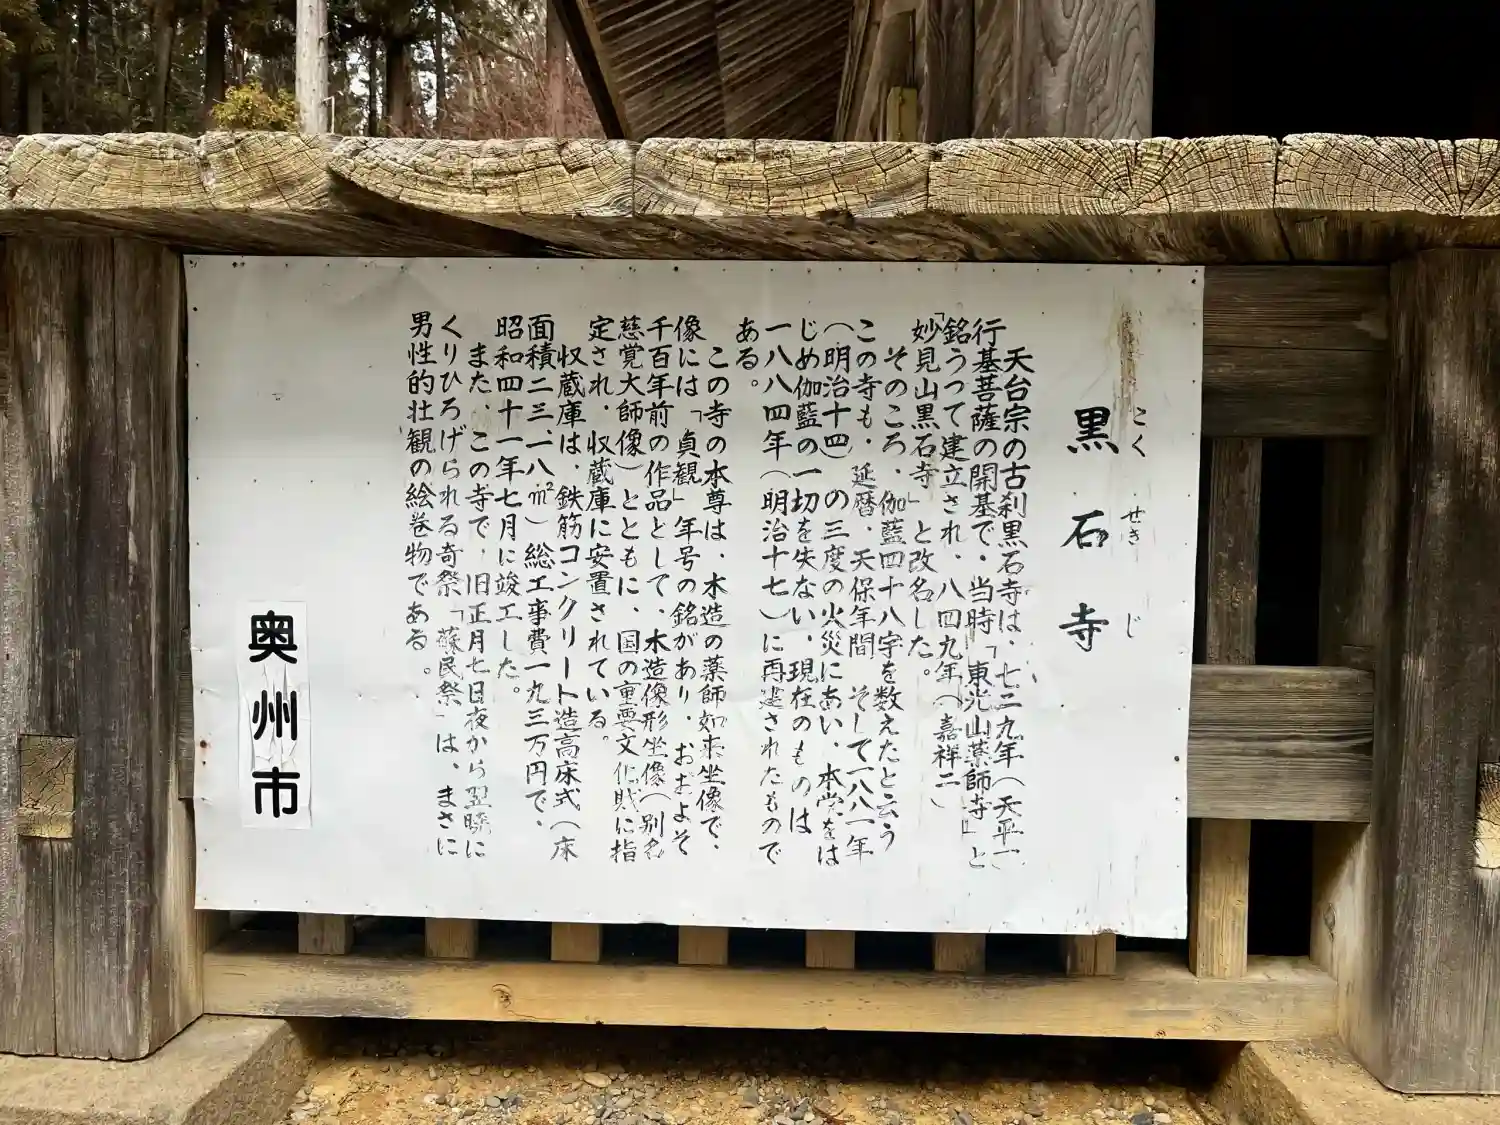 黒石寺
こくせきじ
天台宗の古刹黒石寺は、七二九年(天平一)
行基菩薩の開基で、当時「東光山薬師寺」と
銘うつて建立され、八四九年(嘉祥二)
「妙見山黒石寺」と改名した。
そのころ、伽藍四十八宇を数えたと云う
この寺も、延暦、天保年間 そして一八八一年
(明治十四)の三度の火災にあい、本堂をは
じめ伽藍の一切を失ない、現在のものは
一八八四年(明治十七)に再建されたもので
ある。
この寺の本尊は、木造の薬師如来坐像で、
像には「貞観」年号の銘があり、おおよそ
千百年前の作品として、木造像形坐像(別名
慈覚大師像)とともに、国の重要文化財に指
定され、収蔵庫に安置されている。
収蔵庫は、鉄筋コンクリート造高床式(床
面積二三、一八㎡)総工事費一九三万円で、
昭和四十一年七月に竣工した。
また、この寺で、旧正月七日夜から翌暁に
くりひろげられる奇祭「蘇民祭」は、まさに
男性的壮観の絵巻物である。
奥州市